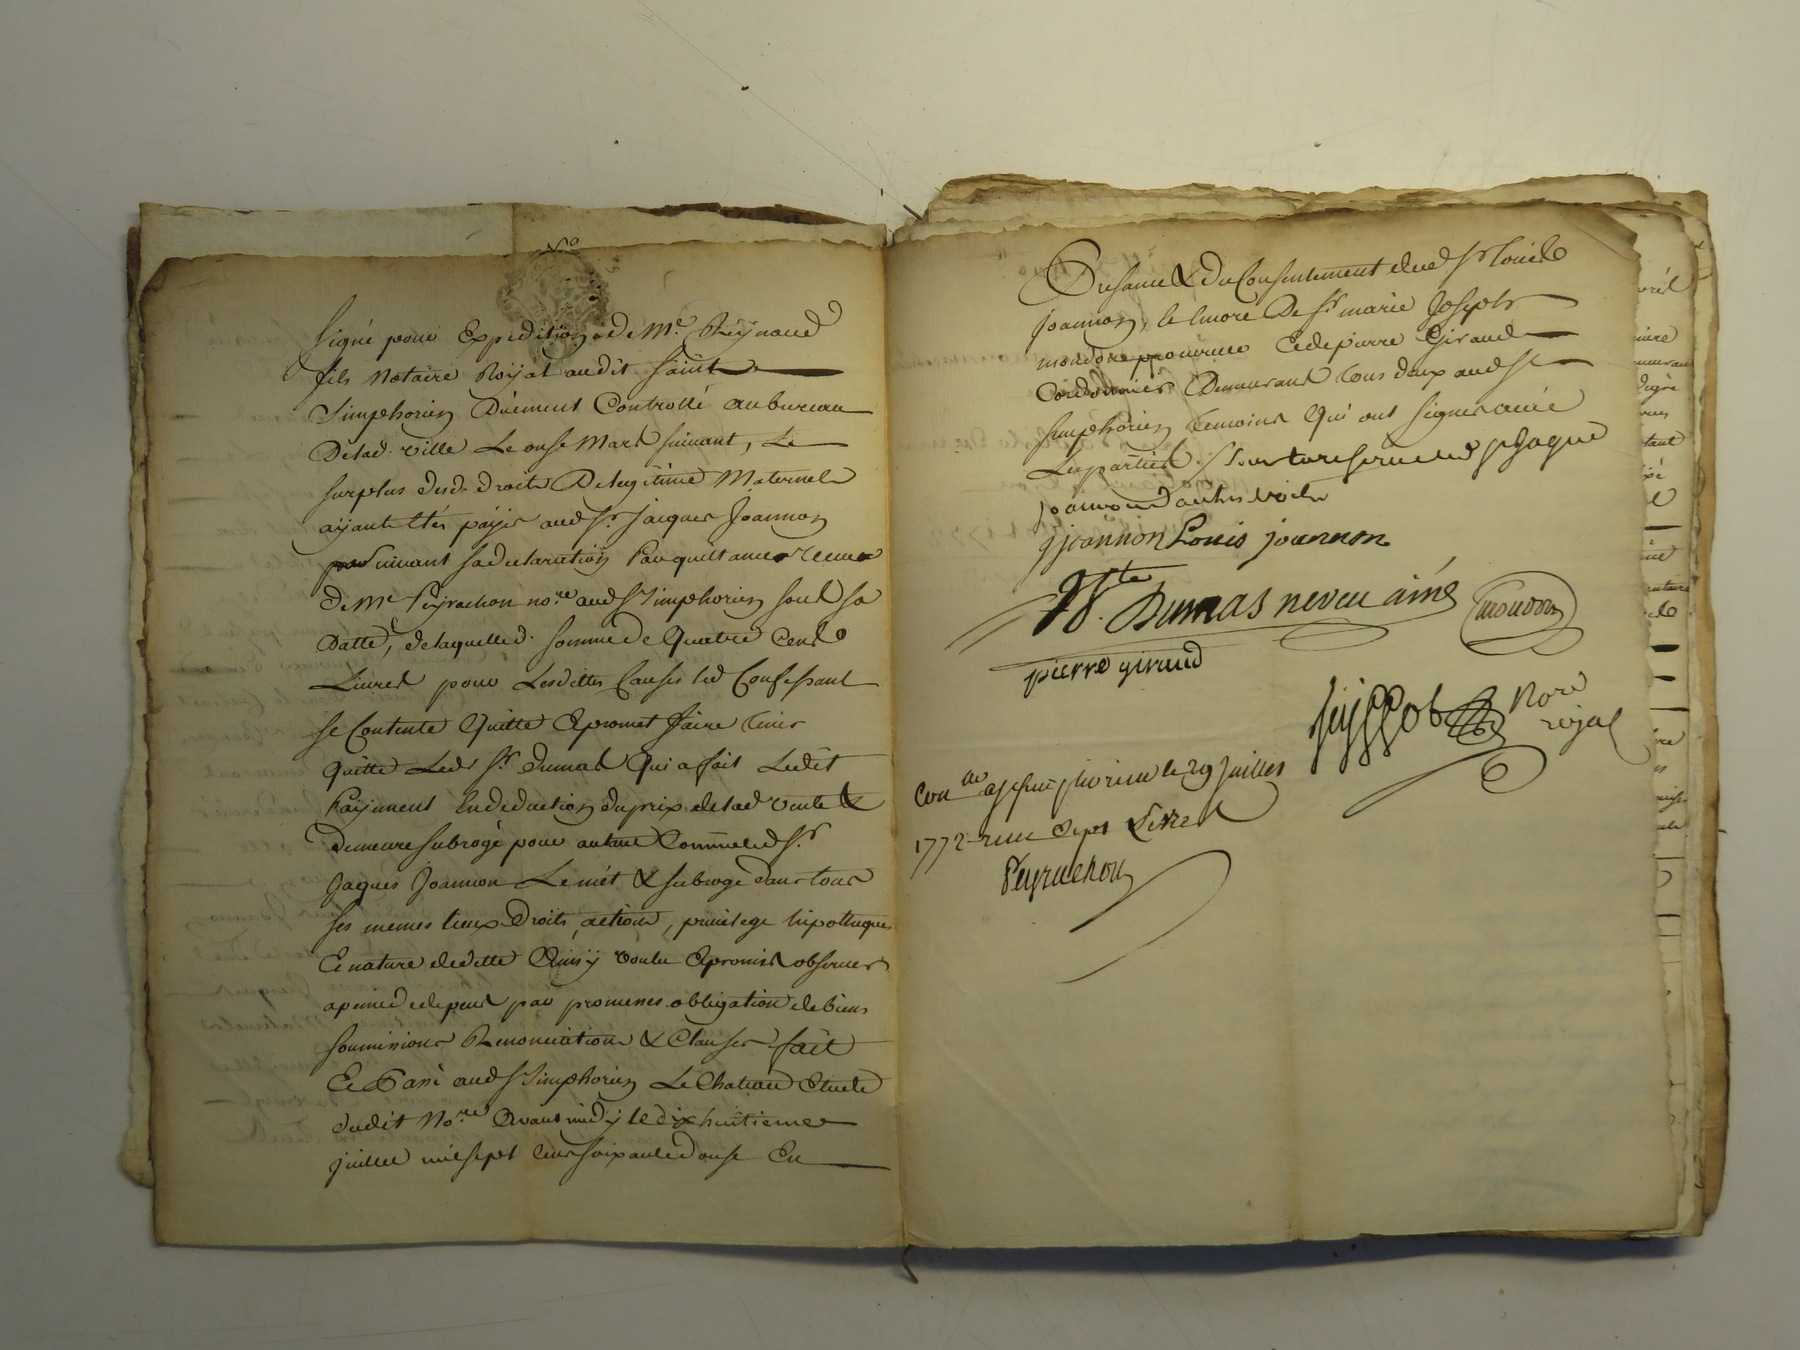 Signé pour Expedition de Me. Reynaud
fils Notaire Royal audit Saint
Simphorien Duement Controllé au bureau
Delad. ville Le onse Mars suivant, Le
surplus desd. droits De legitime Maternels
ayant étés payés aud. Sr. Jacques Joannon
suivant sa declaration par quittance recue
De Me Peyrachon nore. aud. St Simphorien sous sa
Datte, de laquelle d. somme de Quatre Cents
Livres pour Lesdittes Causes led. Confessant
se Contente Quitte & promet faire tenir
Quitte Ledt. Sr. Dumas Qui a fait Ledit
Payement En deduction du prix de lad. vente &
demeure subrogé pour autant Comme led. Sr.
Jaques Joannon Le met & subroge dans tous
ses memes lieux Droits, actions, privilege hipotheques
Et nature de dette Ainsy voulu & promis observer
a peine de depens par promesses obligation de biens
soumissions Renonciations & Clauses fait
Et Passé aud. St Simphorien Le Chateau Etude
dudit Nore. Avant midy le dix huitieme
juillet mil sept Cent soixante douse En
Presence & du Consentement dud. Sr Louis
Joannon, De Sr. marie Joseph
Et de pierre Giraud
Cordonnier Demeurant tous deux aud. St
Simphorien temoins Qui ont signés avec
Les parties. Sr Jaque
Joannon d'autres droits
jjoannon Louis joannon
Dumas neveu ainé mondon
pierre giraud
Nore
royal
le 29 juillet
1772 recu sept Livres
Peyrachon